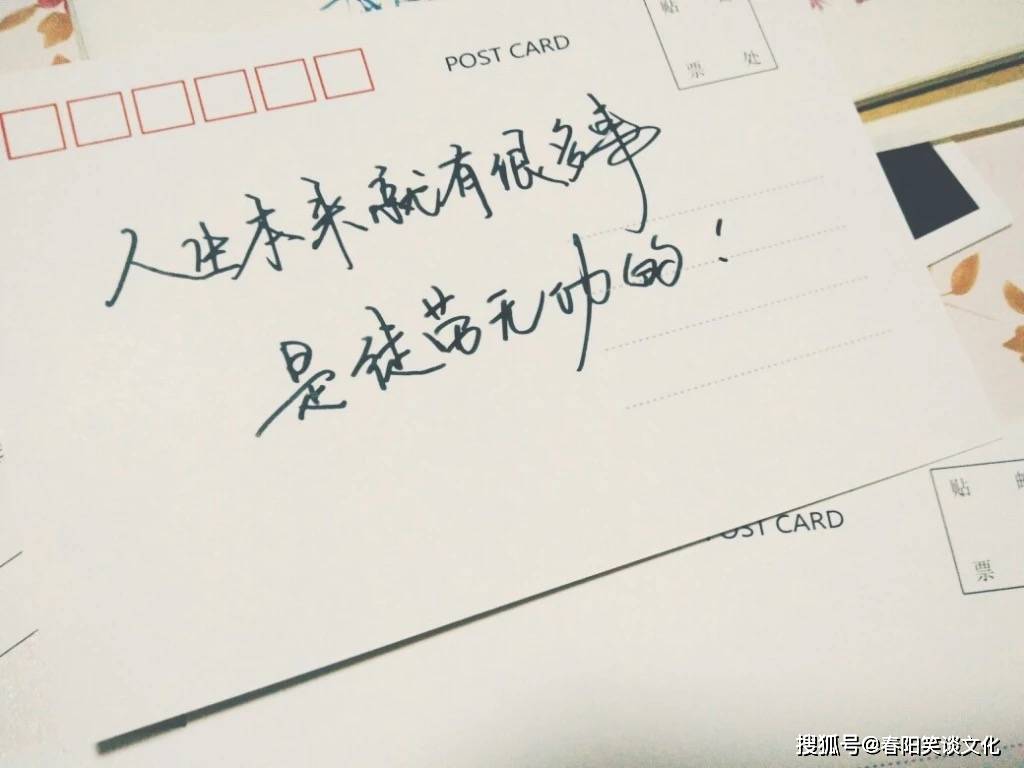 POST CARD
贴
票 处
人生本来就有很多事
是徒劳无功的！
POST CARD
贴 邮
票
搜狐号@春阳笑谈文化